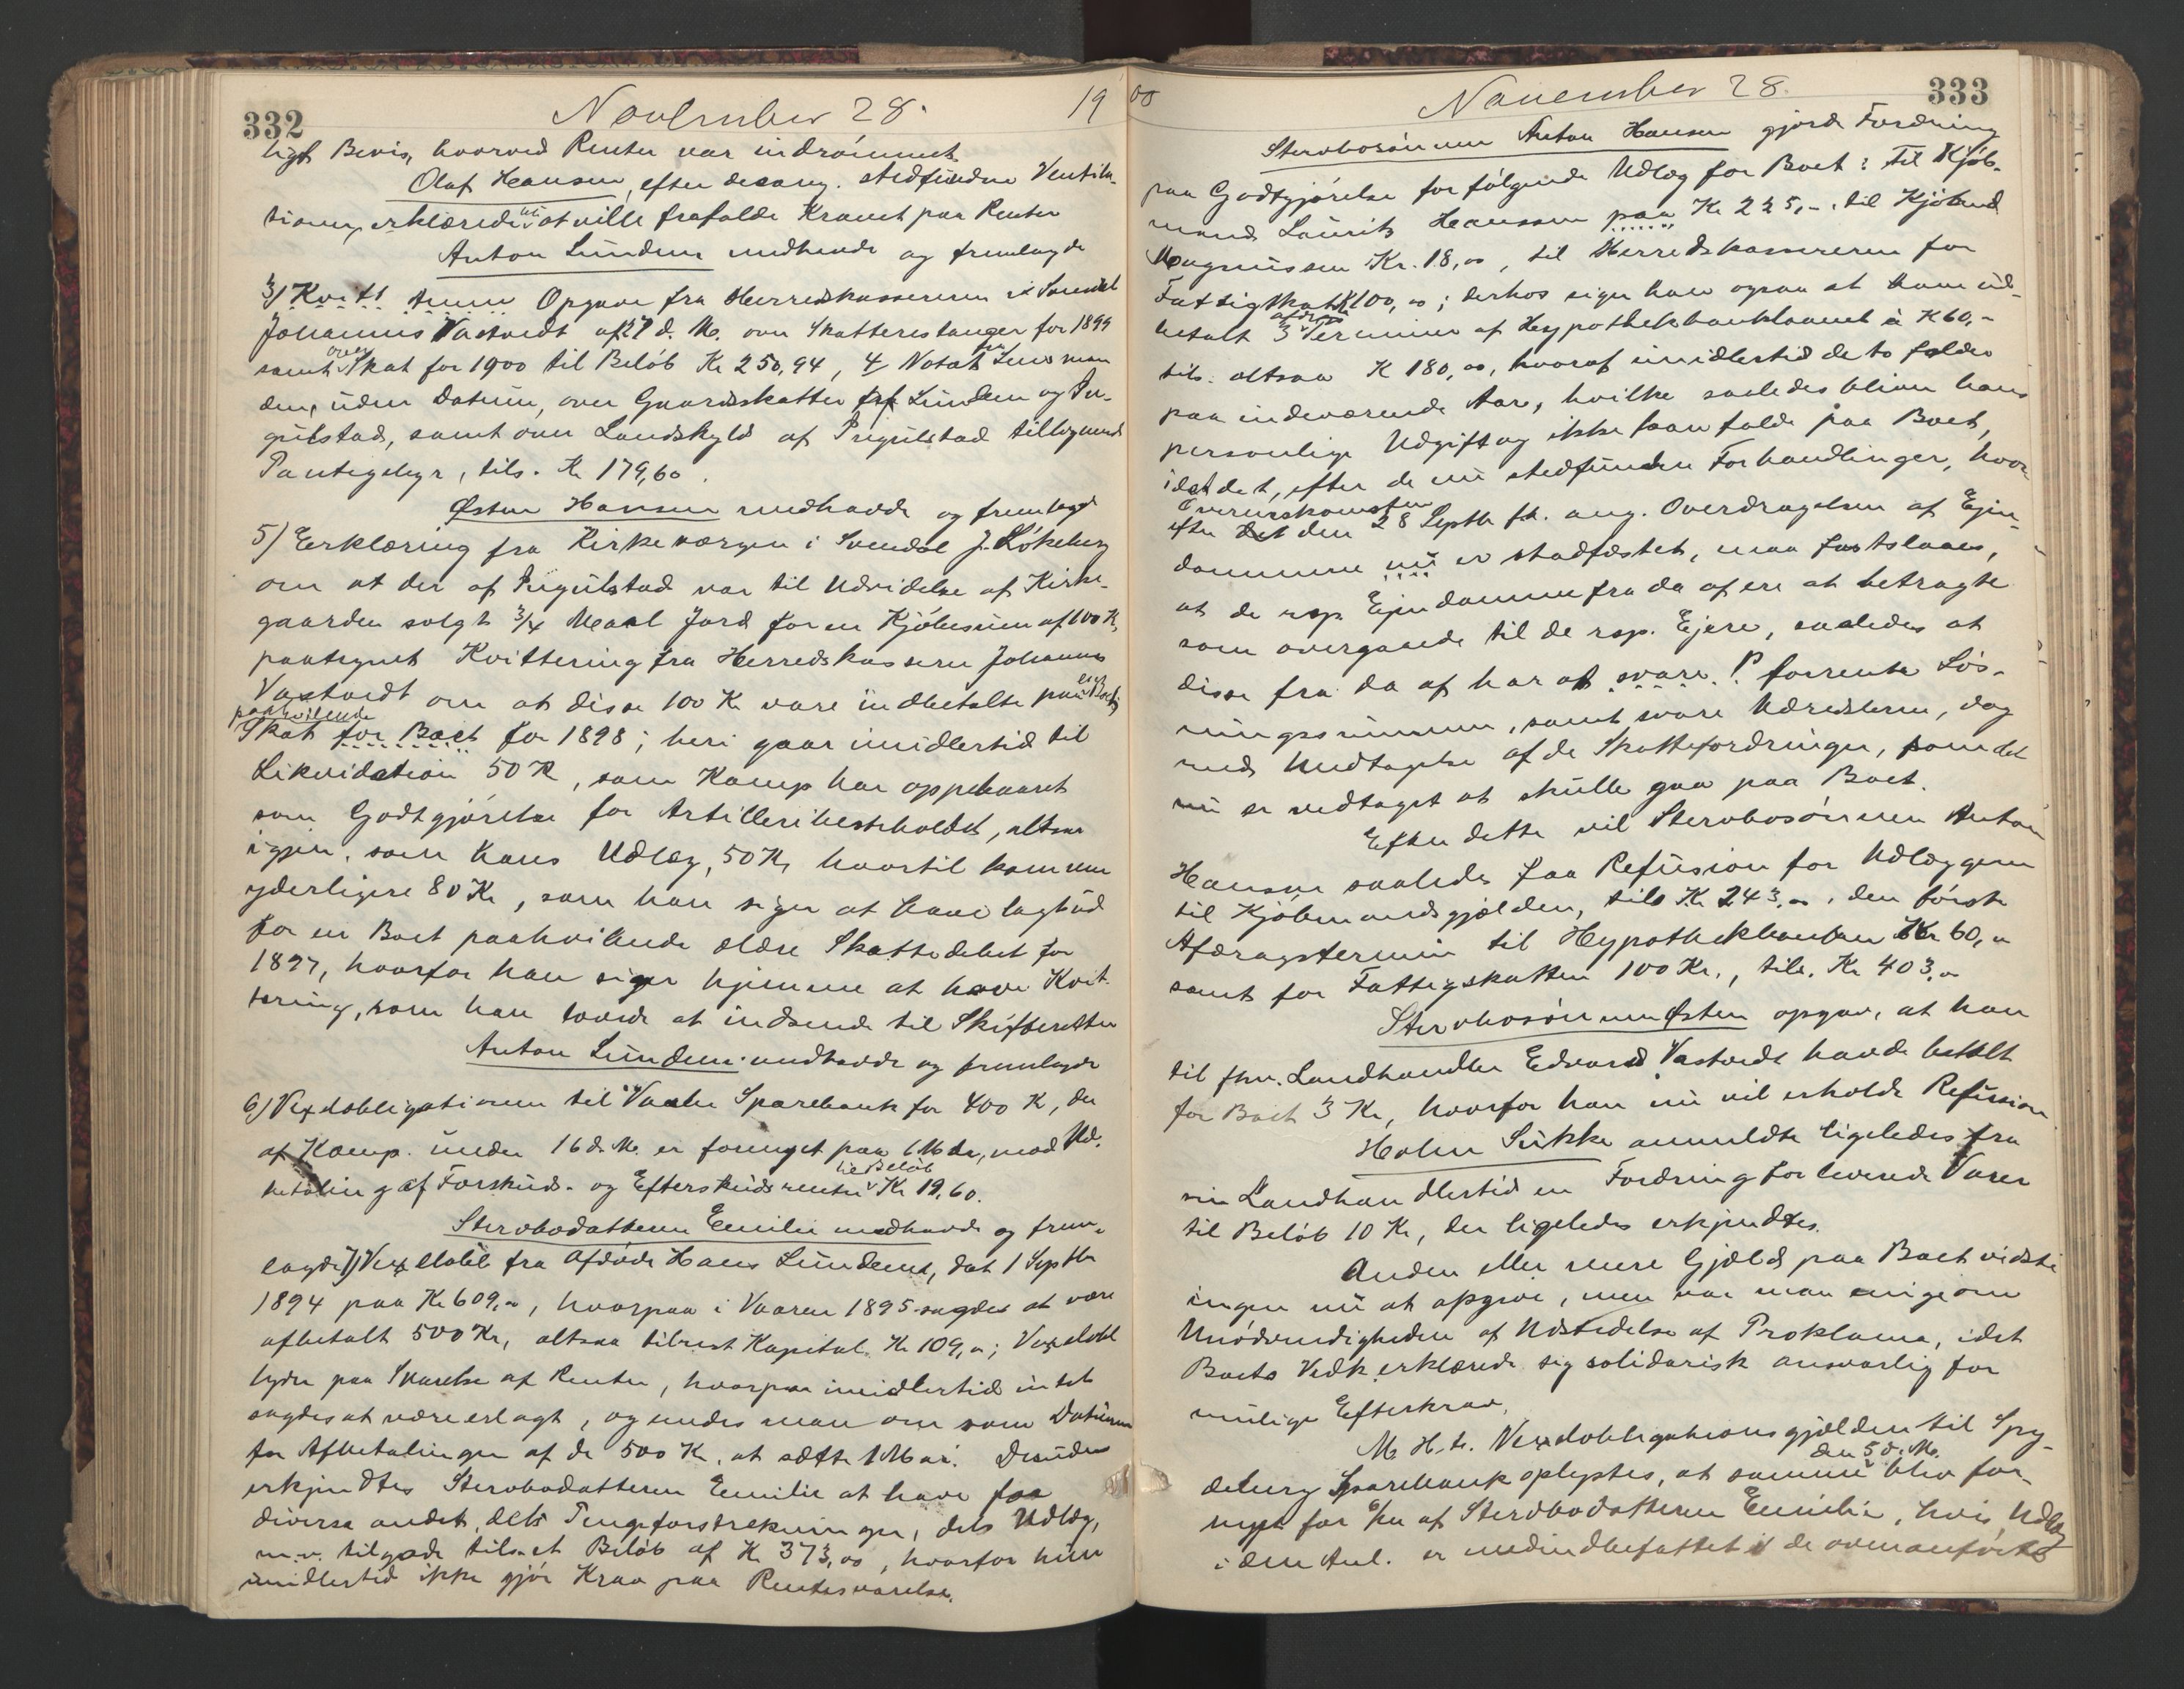 332
November 28.
19
ligt Bevis, hvorved Renter var indrømmet.
Olaf Hansen, efter desang. stedfundne Ventila-
tioner, erklærede nu at ville frafalde Kravet paa Renter
Anton Lunden medhavde og fremlagde
3/ Opgave fra Herredskassereren i Svindal
Johannes Vastvedt af 27 d. M. over Skatterestanger for 1899
samt over Skat for 1900 til Beløb Kr 250,94, 4/ Notat fra Lensman
den, uden Datum, over Gaardsskatter Lunden og
samt over Landskyld af tillignend
Pantegebyr, tils. Kr 179,60.
Østen Hansen medhavde og fremlagde
5) Erklæring fra Kirkeværgen i Svindal J. Løkeberg
om at der af var til Udvidelse af Kirke-
gaarden solgt 3/4 Maal Jord for en Kjøbesum af 100 Kr,
paategnet Kvittering fra Herredskasserer Johannes
Vastvedt om at disse 100 Kr vare indbetalte paa Boets
paahvilende
Skat for Boet for 1898; heri gaar imidlertid til
Likvidation 50 Kr, som Komp har oppebaaret
som Godtgjørelse for Artillerihesteholdet, altsaa
igjen, som hans Udlæg, 50 Kr, hvortil kommer
yderligere 80 Kr, som han siger at have lagt ud
for en Boet paahvilende ældre Skattedebet for
1897, hvorfor han siger hjemme at have Kvit-
tering, som han lovede at indsende til Skifteretten
Anton Lunden medhavde og fremlagde
6) Vexelobligationen til Vaaler Sparebank for 400 Kr, der
af Komp. under 16 d. M. er fornyet paa 6 Mdr, mod Ud-
betaling af Forskuds- og Efterskudsrenter til Beløb Kr 19,60.
Stervbodatteren Emilie medhavde og frem-
lagde 7) Vexelobl fra Afdøde Hans Lunden, dat 1 Septbr
1894 paa Kr 609,00, hvorpaa i Vaaren 1895 sagdes at være
afbetalt 500 Kr, altsaa tilrest Kapital Kr 109,00; Vexelobl
lyder paa Svarelse af Renter, hvorpaa imidlertid intet
sagdes at være erlagt, og enedes man om som Datum
for Afbetalingen af de 500 Kr. at sætte 1 Mai. Desuden
erkjendtes Stervbodatteren Emilie at have for
diverse andet, dels Pengeforstrækninger, dels Udlæg,
m.v. tilgode tils. et Beløb af Kr 373,00, hvorfor hun
imidlertid ikke gjør Krav paa Rentesvarelse.
00
November 28.
333
Stervbosønnen Anton Hansen gjorde Fordring
paa Godtgjørelse for følgende Udlæg for Boet: Til Kjøb-
mand Laurits Hansson paa Kr 225,-, til Kjøbmd
Magnussen Kr. 18,00, til Herredskassereren for
Fattigskat Kr 100,00; derhos siger han ogsaa at have ud-
betalt 3 Terminer af Hypothekbanklaanet à K 60,-
tils. altsaa K 180,00, hvoraf imidlertid de to falder
paa indeværende Aar, hvilke saaledes bliver hans
personlige Udgift og ikke kan falde paa Boet,
idet det, efter de nu stedfundne Forhandlinger, hvor-
Overenskomsten
efter den 28 Septbr f.A. ang. Overdragelsen af Ejen-
dommene nu er stadfæstet, maa fastslaaes,
at de resp. Ejendomme fra da af ere at betragte
som overgaaede til de resp. Ejere, saaledes at
disse fra da af har at svare forrente Løs-
ningssummen, samt svare Udredslerne, dog
med Undtagelse af de Skattefordringer, som det
nu er vedtaget at skulle gaa paa Boet.
Efter dette vil Stervbosønnen Anton
Hansen saaledes faa Refusion for Udlæggene
til Kjøbmandsgjælden, tils Kr 243,00, den første
Afdragstermin til Hypothekbanken Kr 60,00
samt for Fattigskatten 100 Kr., tils. Kr 403,00
Stervbosønnen Østen opgav, at han
til fhv. Landhandler Edvard Vastvedt havde betalt
for Boet 3 Kr, hvorfor han nu vil erholde Refusion
Holm anmeldte ligeledes fra
sin Landhandlertid en Fordring for leverede Varer
til Beløb 10 Kr, der ligeledes erkjendtes.
Anden eller mere Gjæld paa Boet vidste
ingen nu at opgive, men var man enige om
Unødvendigheden af Udstedelse af Proklama, idet
Boets Vedk. erklærede sig solidarisk ansvarlig for
mulige Efterkrav.
M. H. t. Vexelobligationsgjælden til Spy-
deberg Sparebank oplystes, at samme den 5 d. M. blev for-
nyet for af Stervbodatteren Emilie, hvis Udlæg
i den Anl. er medindbefattet i de ovenanførte